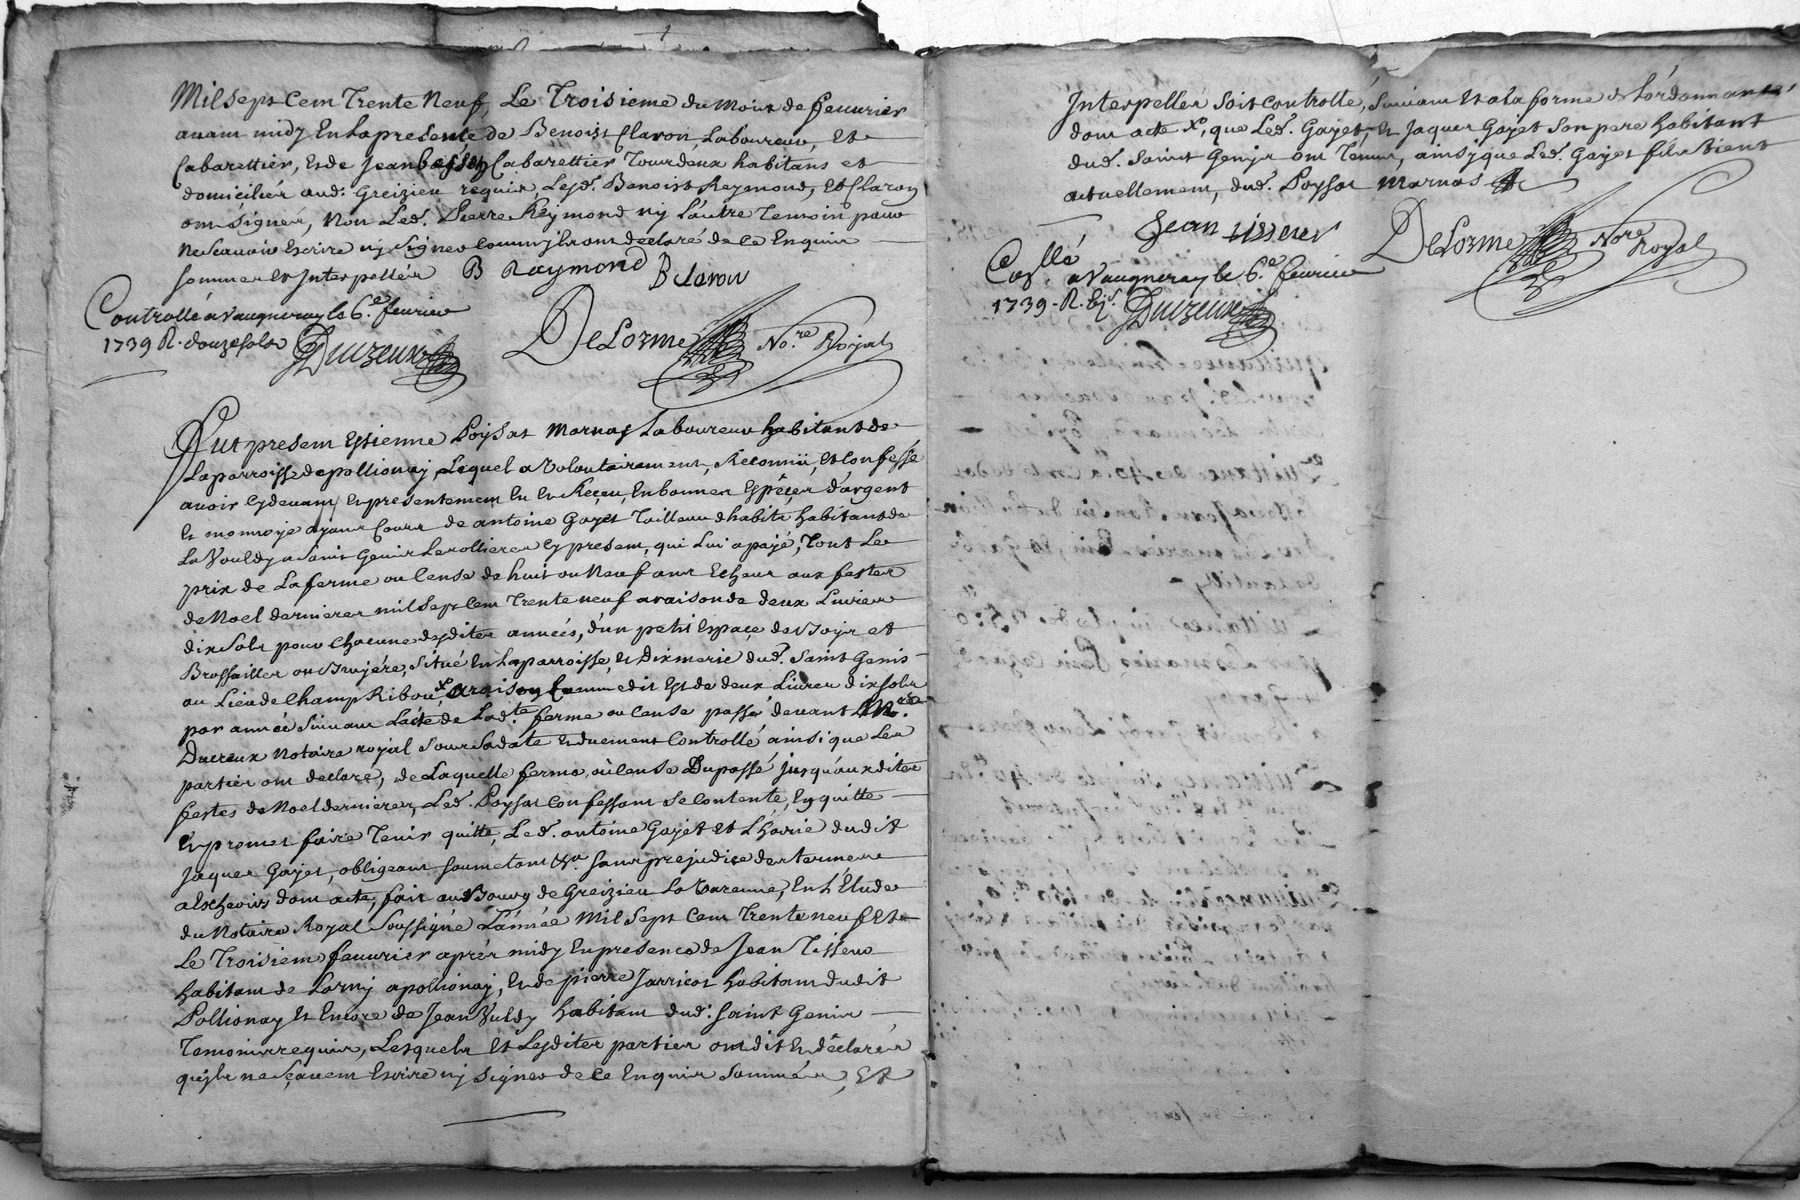 Mil Sept Cem Trente Neuf, Le Troisieme du Moix de feuurier
auam midy En La presente de Benoist Claron, Laboureur, et
Cabarettier, Et de Jean Cabarettier Tour deux habitans et
domicilier aud: Greizieu requir Lesd. Benoist Reymond, Et Claron
om signer, Non Led. Pierre Reymond ny L'autre Temoin pour
ne Scauoir Escrire ny Signer comm'jlz om declaré de ce Enquir
sommer Et Interpellér B Raymond B Claron
Controllé a Vaugneray le 6.e feurier
1739 R. douze solz Duizeux
DeLorme No.re Royal
Fut presem Estienne Poysat Marnas Laboureur habitant de
La parroisse de pollionay, Lequel a Volontairement, Reconnü, et Confessé
auoir Cydeuam, Et presentemem Eu et Reçeu, En bonner Espêcer d'argent
Et monnoye ayam Cour de antoine Gayet Tailleur dhabitz habitant de
La Vouldy a Saint Genir Lerollierer Cy presem, qui Lui a payé, Tout Le
prix de La ferme ou Cense de huit ou Neuf anr Echeur aux fester
de Noel dernierer mil Sept Cem Trente neuf a raison de deux Liurer
dix Solz pour Chacune desditer années, d'un petit Espaçe de Boyr et
Brossailler ou Bruyére, situé En La parroisse, Et Dixmerie dud. Saint Genis
au Lieu de Champ Riboux, a raison Comme dit Est de deux Liurer dix solz
par année Suiuam L'acte de Lad.te ferme ou Cense passé deuant M.re
Ducreux Notaire royal Sour Sa date Et duement Controllé ainsi que Les
partier om declaré, de Laquelle ferme, ou Cense Du passé jusqu'aux diter
festes de Noel dernierer, Led. Poysat Confessam Se Contente, En quitte
Et promet faire Tenir quitte, Led. antoine Gayet et L'hoirie dudit
Jaquer Gayet, obligeam soumetam &a. Sanr prejudice der termer
a Escheoir dom acte, fait aud Bourg de Greizieu La Varenne, En L'Etude
du Notaire Royal Soussigné L'année Mil Sept Cem Trente neuf Et
Le Troisiem feuurier aprér midy En presence de Jean Tisseur
habitam de Larny a pollionay, Et de pierre Jarricot habitam dudit
Pollionay Et Encore de Jean Vuldy habitam dud: Saint Genir
Temoinr requir, Lesquelz Et Lesditer partier om dit Et déclarér
qu'jlz ne Sçauem Escrire ny Signer de Ce Enquir Sommér, Et
Interpellér soit controllé, Suiuam Et a La forme de L'ordonnance
dom acte X, que Led. Gayet, Et Jaquer Gayet Son pere habitant
dud. Saint Genir om Tenu, ainsy que Led. Gayet fils tient
actuellement, dud. Poysat Marnas
Jean tisseur
Con.llé a Vaugneray le 6.e feurier
1739 - R. Duizeux
DeLorme No.re Royal